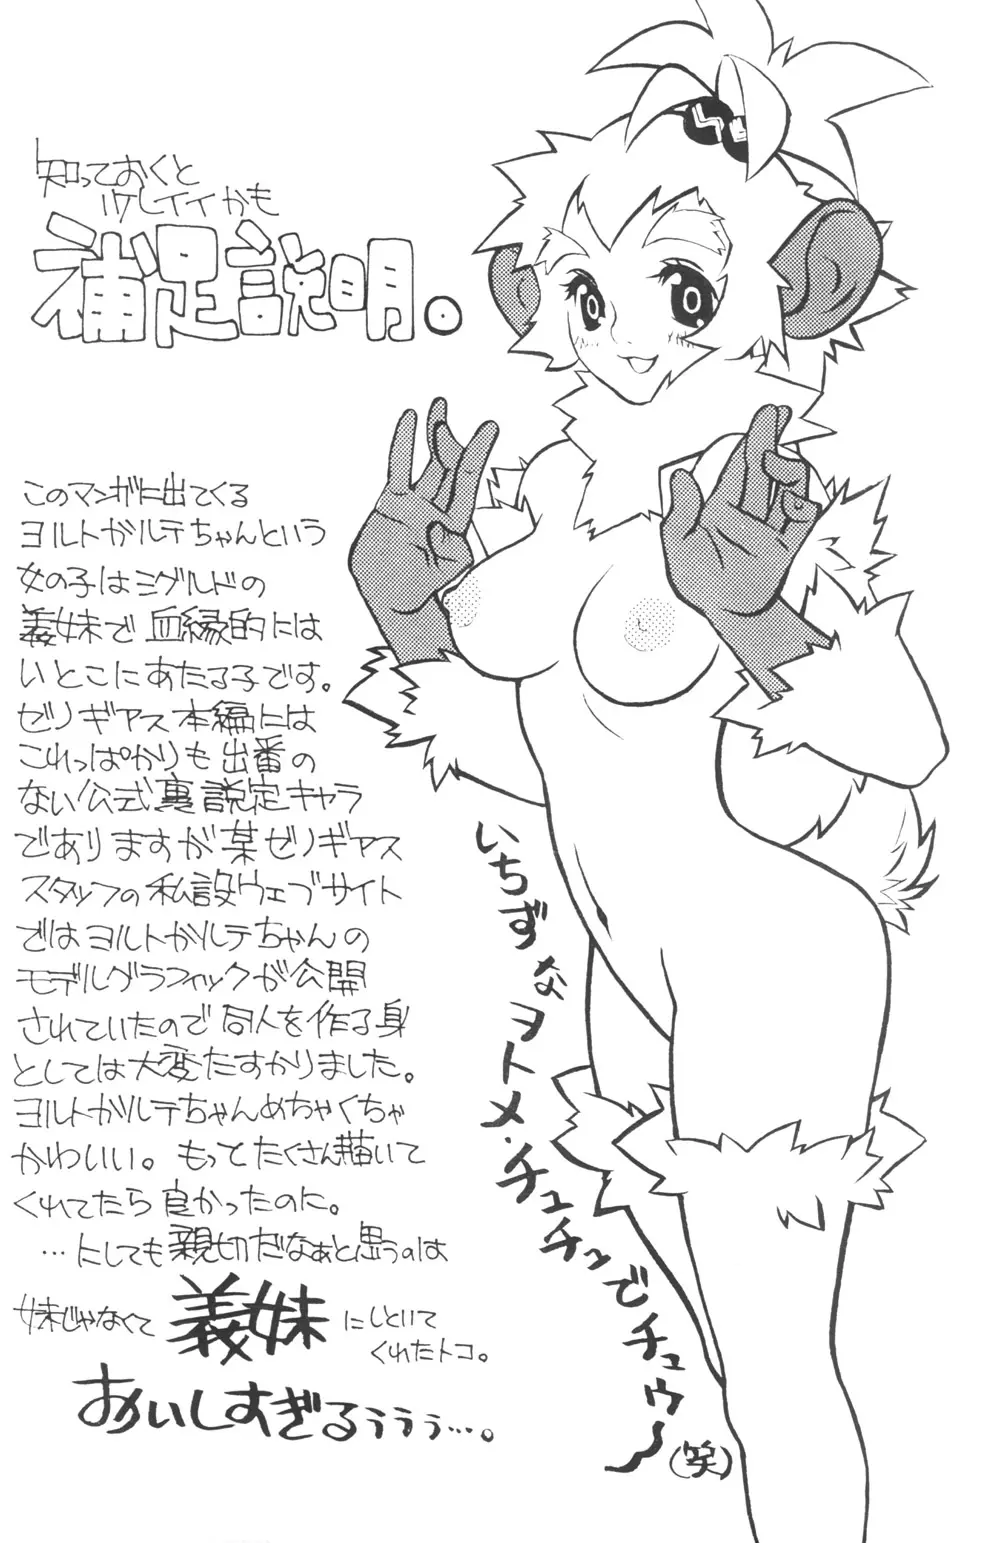 知っておくと
ソケしイイかも
補足説明。
このマンガに出てくる
ヨルトガルテちゃんという
女の子はミグルドの
義妹で血縁的には
いとこにあたる子です。
ゼノギアス本編には
これっぱかりも出番の
ない公式裏設定キャラ
でありますが某ゼノギアス
スタッフの私設ウェブサイト
ではヨルトガルテちゃんの
モデルグラフィックが公開
されていたので同人を作る身
としては大変たすかりました。
ヨルトガルテちゃんめちゃくちゃ
かわいい。もっとたくさん描いて
くれてたら良かったのに。
…にしても親切だなぁと思うのは
妹じゃなくて義妹にしといて
くれたトコ。
おいしすぎるぅぅぅ…。
いちずなヲトメ・チュチュンでチュウ〜(笑)